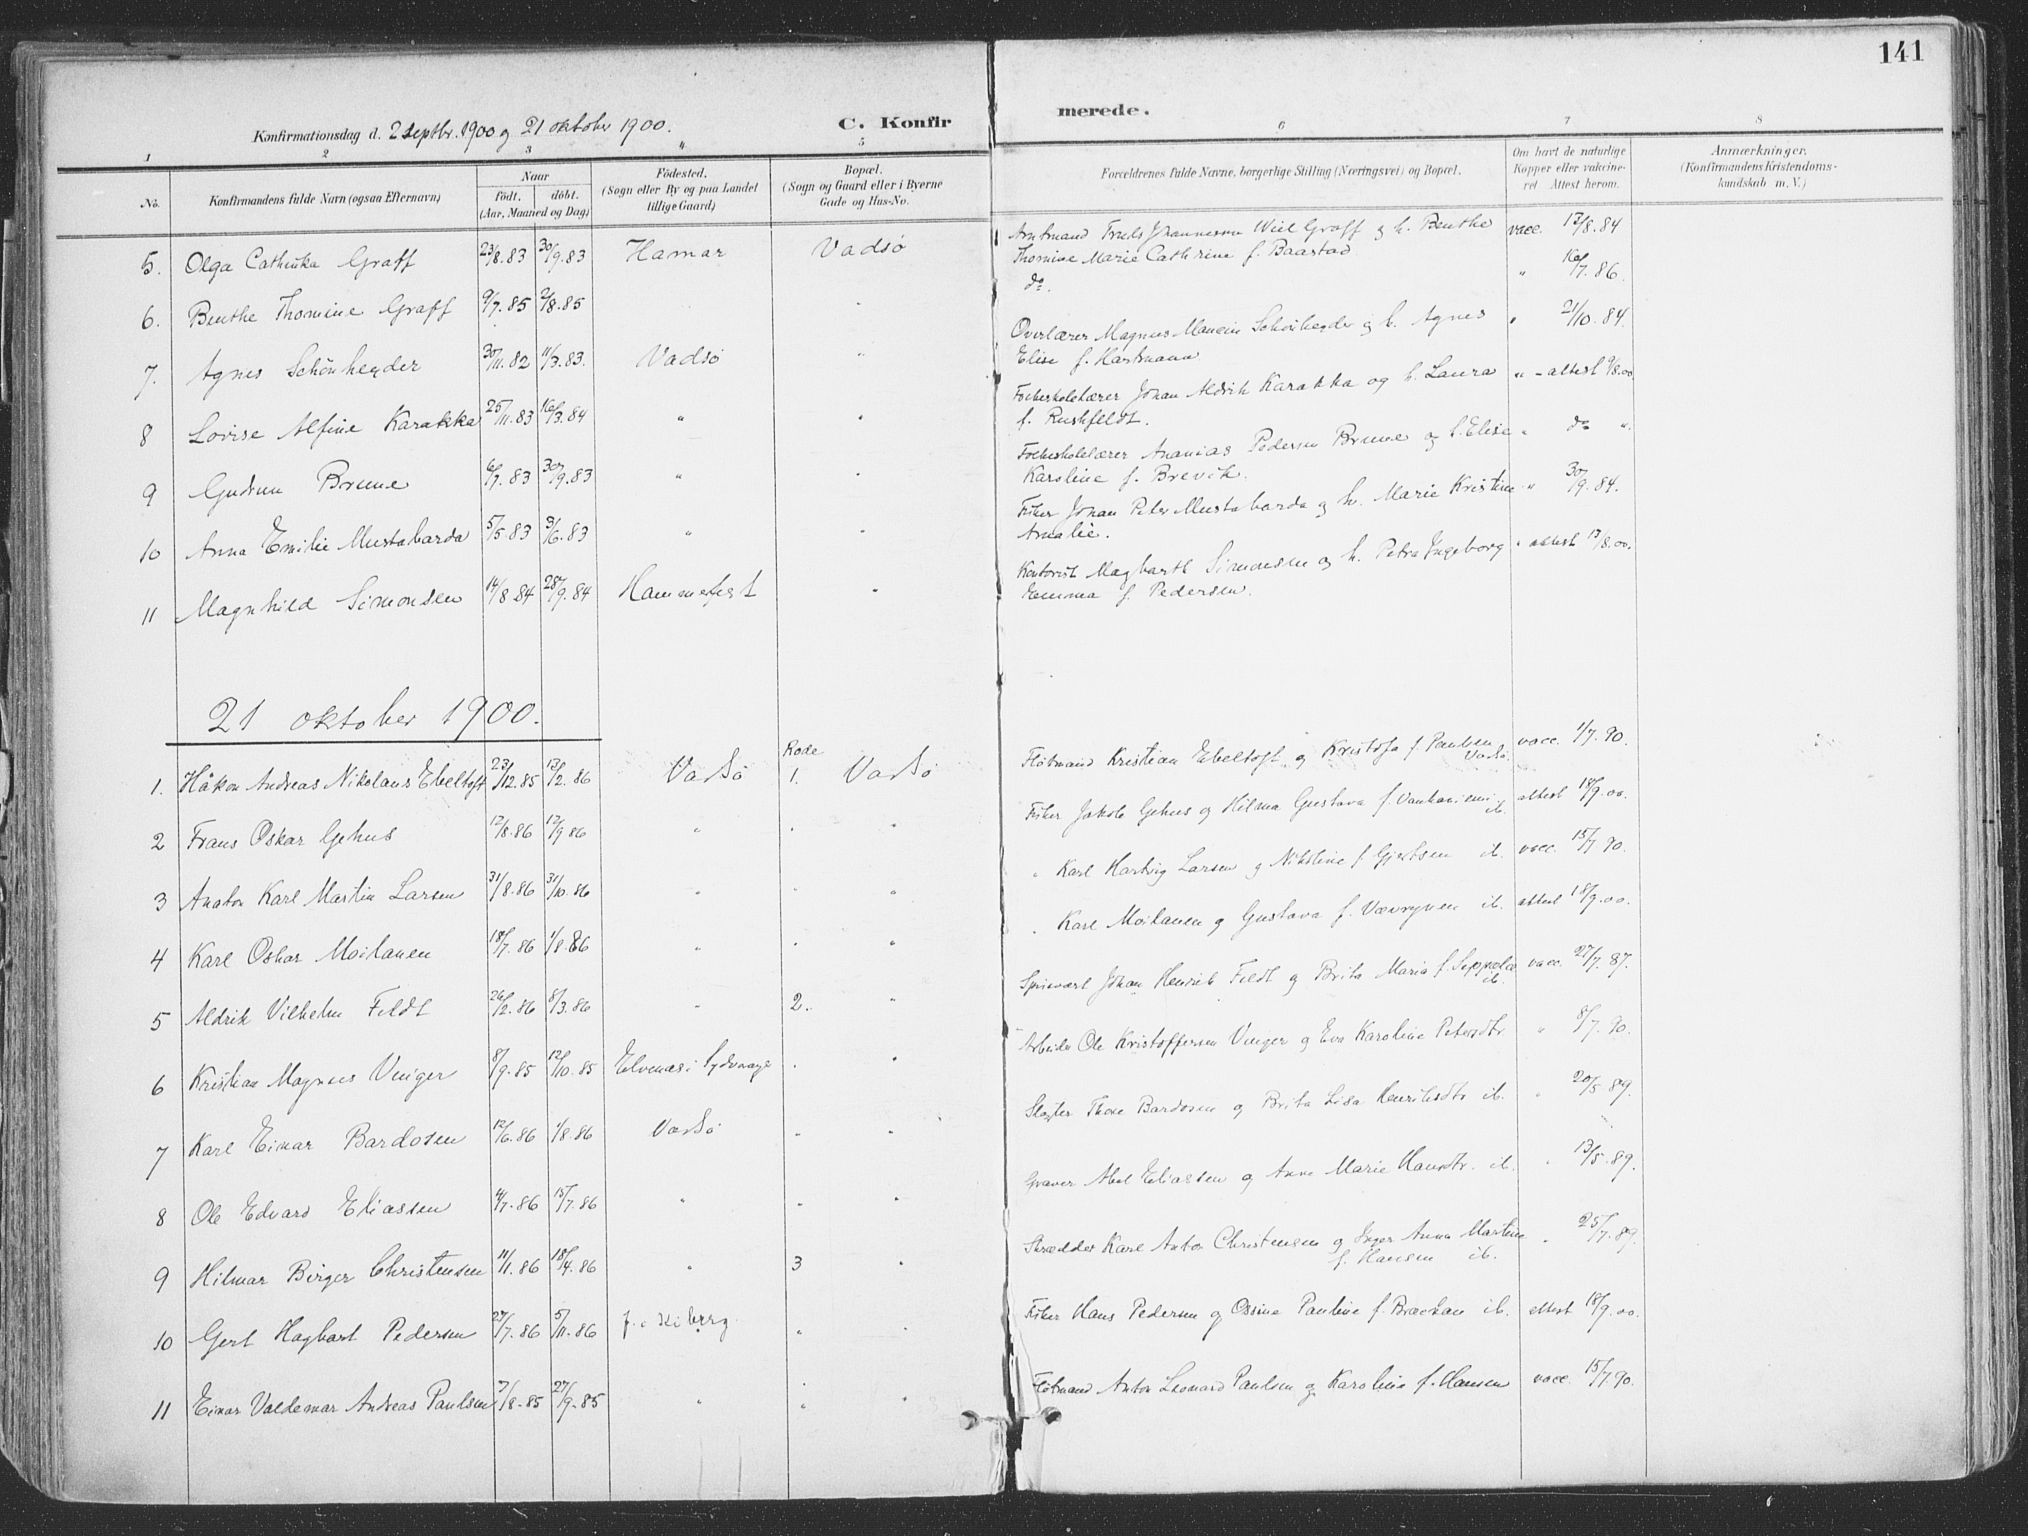 141
Konfirmationsdag d. 2 Septbr. 1900 og 21 oktober 1900.
C. Konfirmerede.
1 2 3 4 5 6 7 8
No.
Konfirmandens fulde Navn (ogsaa Efternavn)
Naar
født. døbt.
(Aar, Maaned og Dag)
Fødested.
(Sogn eller By og paa Landet
tillige Gaard)
Bopæl.
(Sogn og Gaard eller i Byerne
Gade og Hus-No.
Forældrenes fulde Navne, borgerlige Stilling (Næringsvei) og Bopæl.
Om havt de naturlige
Kopper eller vakcine-
ret Attest herom.
Anmærkninger.
(Konfirmandens Kristendoms-
kundskab m. V.)
5. Olga Cathinka Graff 23/8.83 30/9.83 Hamar Vadsø Amtmand Truls Johannesen Wiel Graff og h. Benthe vacc. 13/8.84
Thomine Marie Cathrine f. Baastad
6. Benthe Thomine Graff 9/7.85 2/8.85 " do. " 16/7.86.
7. Agnes Schönheyder 30/11.82 11/3.83. Vadsø " Overlærer Magnus Mancin Schönheyder og h. Agnes " 21/10.84.
Elise f. Hartmann
8 Lovise Alfine Karakka 25/11.83 16/3.84 " " Folkeskolelærer Johan Aldrik Karakka og h. Laura " - attest 9/8.00
f. Rushfeldt.
9 Gudrun Brune 6/7.83 30/9.83 " " Folkeskolelærer Ananias Pedersen Brune og h. Elise " do "
Karoline f. Brevik.
10 Anna Emilie Mustabarda 5/5.83 3/6.83 " " Fisker Johan Peter Mustabarda og h. Marie Kristine " 30/9.84.
Amalie.
11 Magnhild Simonsen 14/8 84 28/9.84 Hammerfest " Kontorist Magbarth Simonsen og h. Petra Ingeborg " attest 13/8.00.
Emma f. Pedersen.
21 oktober 1900.
Rode
1. Håkon Andreas Nikolaus Ebeltoft 23/12.85 13/2.86 Vadsø 1. Vadsø Fløtmand Kristian Ebeltoft og Kristofa f. Paulsen vacc. 1/7.90.
Vadsø.
2 Frans Oskar Gehus 12/8.86 12/9 86 " " " Fisker Jakob Gehus og Hilma Gustava f. attest 18/9.00.
ib.
3 Anton Karl Martin Larsen 31/8.86 31/10.86 " " " " Karl Hartvig Larsen og Nikoline f. Gjertsen ib. vacc. 15/7 90.
4 Karl Oskar Moilanen 18/7.86 1/8.86 " " " " Karl Moilanen og Gustava f. Vævrynen ib. attest 18/9.00.
5 Aldrik Vilhelm Feldt 26/2.86 8/3.86 " 2. " Spisevært Johan Henrik Feldt og Brita Maria f. Seppola vacc. 27/7.87.
ib.
6 Kristian Magnus Vinger 8/9.85 12/10.85 Elvenæs i Sydvaranger " " Arbeider Ole Kristoffersen Vinger og Eva Karoline Petersdtr " 8/7.90.
7 Karl Einar Bardosen 12/6.86 1/8.86 Vadsø " " Slagter Thore Bardosen og Brita Lisa Henriksdtr ib. " 20/5 89.
8 Ole Edvard Eliassen 4/7.86 15/7.86 " " " Graver Abel Eliassen og Anne Marie Hansdtr. ib. " 13/5.89.
9 Hilmar Birger Christensen 11/1.86 18/4.86 " 3 " Skrædder Karl Anton Christensen og Inger Anna Martine " 25/7.89.
f. Hansen ib.
10 Gert Hagbart Pedersen 27/7.86 5/11.86 f. i Kiberg. " " Fisker Hans Pedersen og Ossine Pauline f. Brækan ib. attest 18/9.00.
11 Einar Valdemar Andreas Paulsen 7/8.85 27/9.85 " " " Fløtmand Anton Leonard Paulsen og Karoline f. Hansen vacc. 15/7.90.